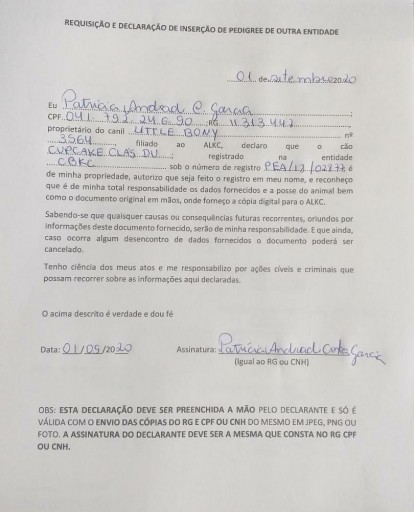 REQUISIÇÃO E DECLARAÇÃO DE INSERÇÃO DE PEDIGREE DE OUTRA ENTIDADE
01 de setembro 2020
Eu Patricia Andrad C. Garcia
CPF 041 792 246 90 RG 11 313 442
proprietário do canil LITTLE BONY nº
3564 filiado ao ALKC, declaro que o cão
CUPCAKE CLAS DU registrado na entidade
CBKC sob o número de registro PEA/12/02877 é
de minha propriedade, autorizo que seja feito o registro em meu nome, e reconheço
que é de minha total responsabilidade os dados fornecidos e a posse do animal bem
como o documento original em mãos, onde forneço a cópia digital para o ALKC.
Sabendo-se que quaisquer causas ou consequências futuras recorrentes, oriundos por
informações deste documento fornecido, serão de minha responsabilidade. E que ainda,
caso ocorra algum desencontro de dados fornecidos o documento poderá ser
cancelado.
Tenho ciência dos meus atos e me responsabilizo por ações cíveis e criminais que
possam recorrer sobre as informações aqui declaradas.
O acima descrito é verdade e dou fé
Data: 01/09/2020 Assinatura: Patricia Andrad Garcia
(Igual ao RG ou CNH)
OBS: ESTA DECLARAÇÃO DEVE SER PREENCHIDA A MÃO PELO DECLARANTE E SÓ É
VÁLIDA COM O ENVIO DAS CÓPIAS DO RG E CPF OU CNH DO MESMO EM JPEG, PNG OU
FOTO. A ASSINATURA DO DECLARANTE DEVE SER A MESMA QUE CONSTA NO RG CPF
OU CNH.